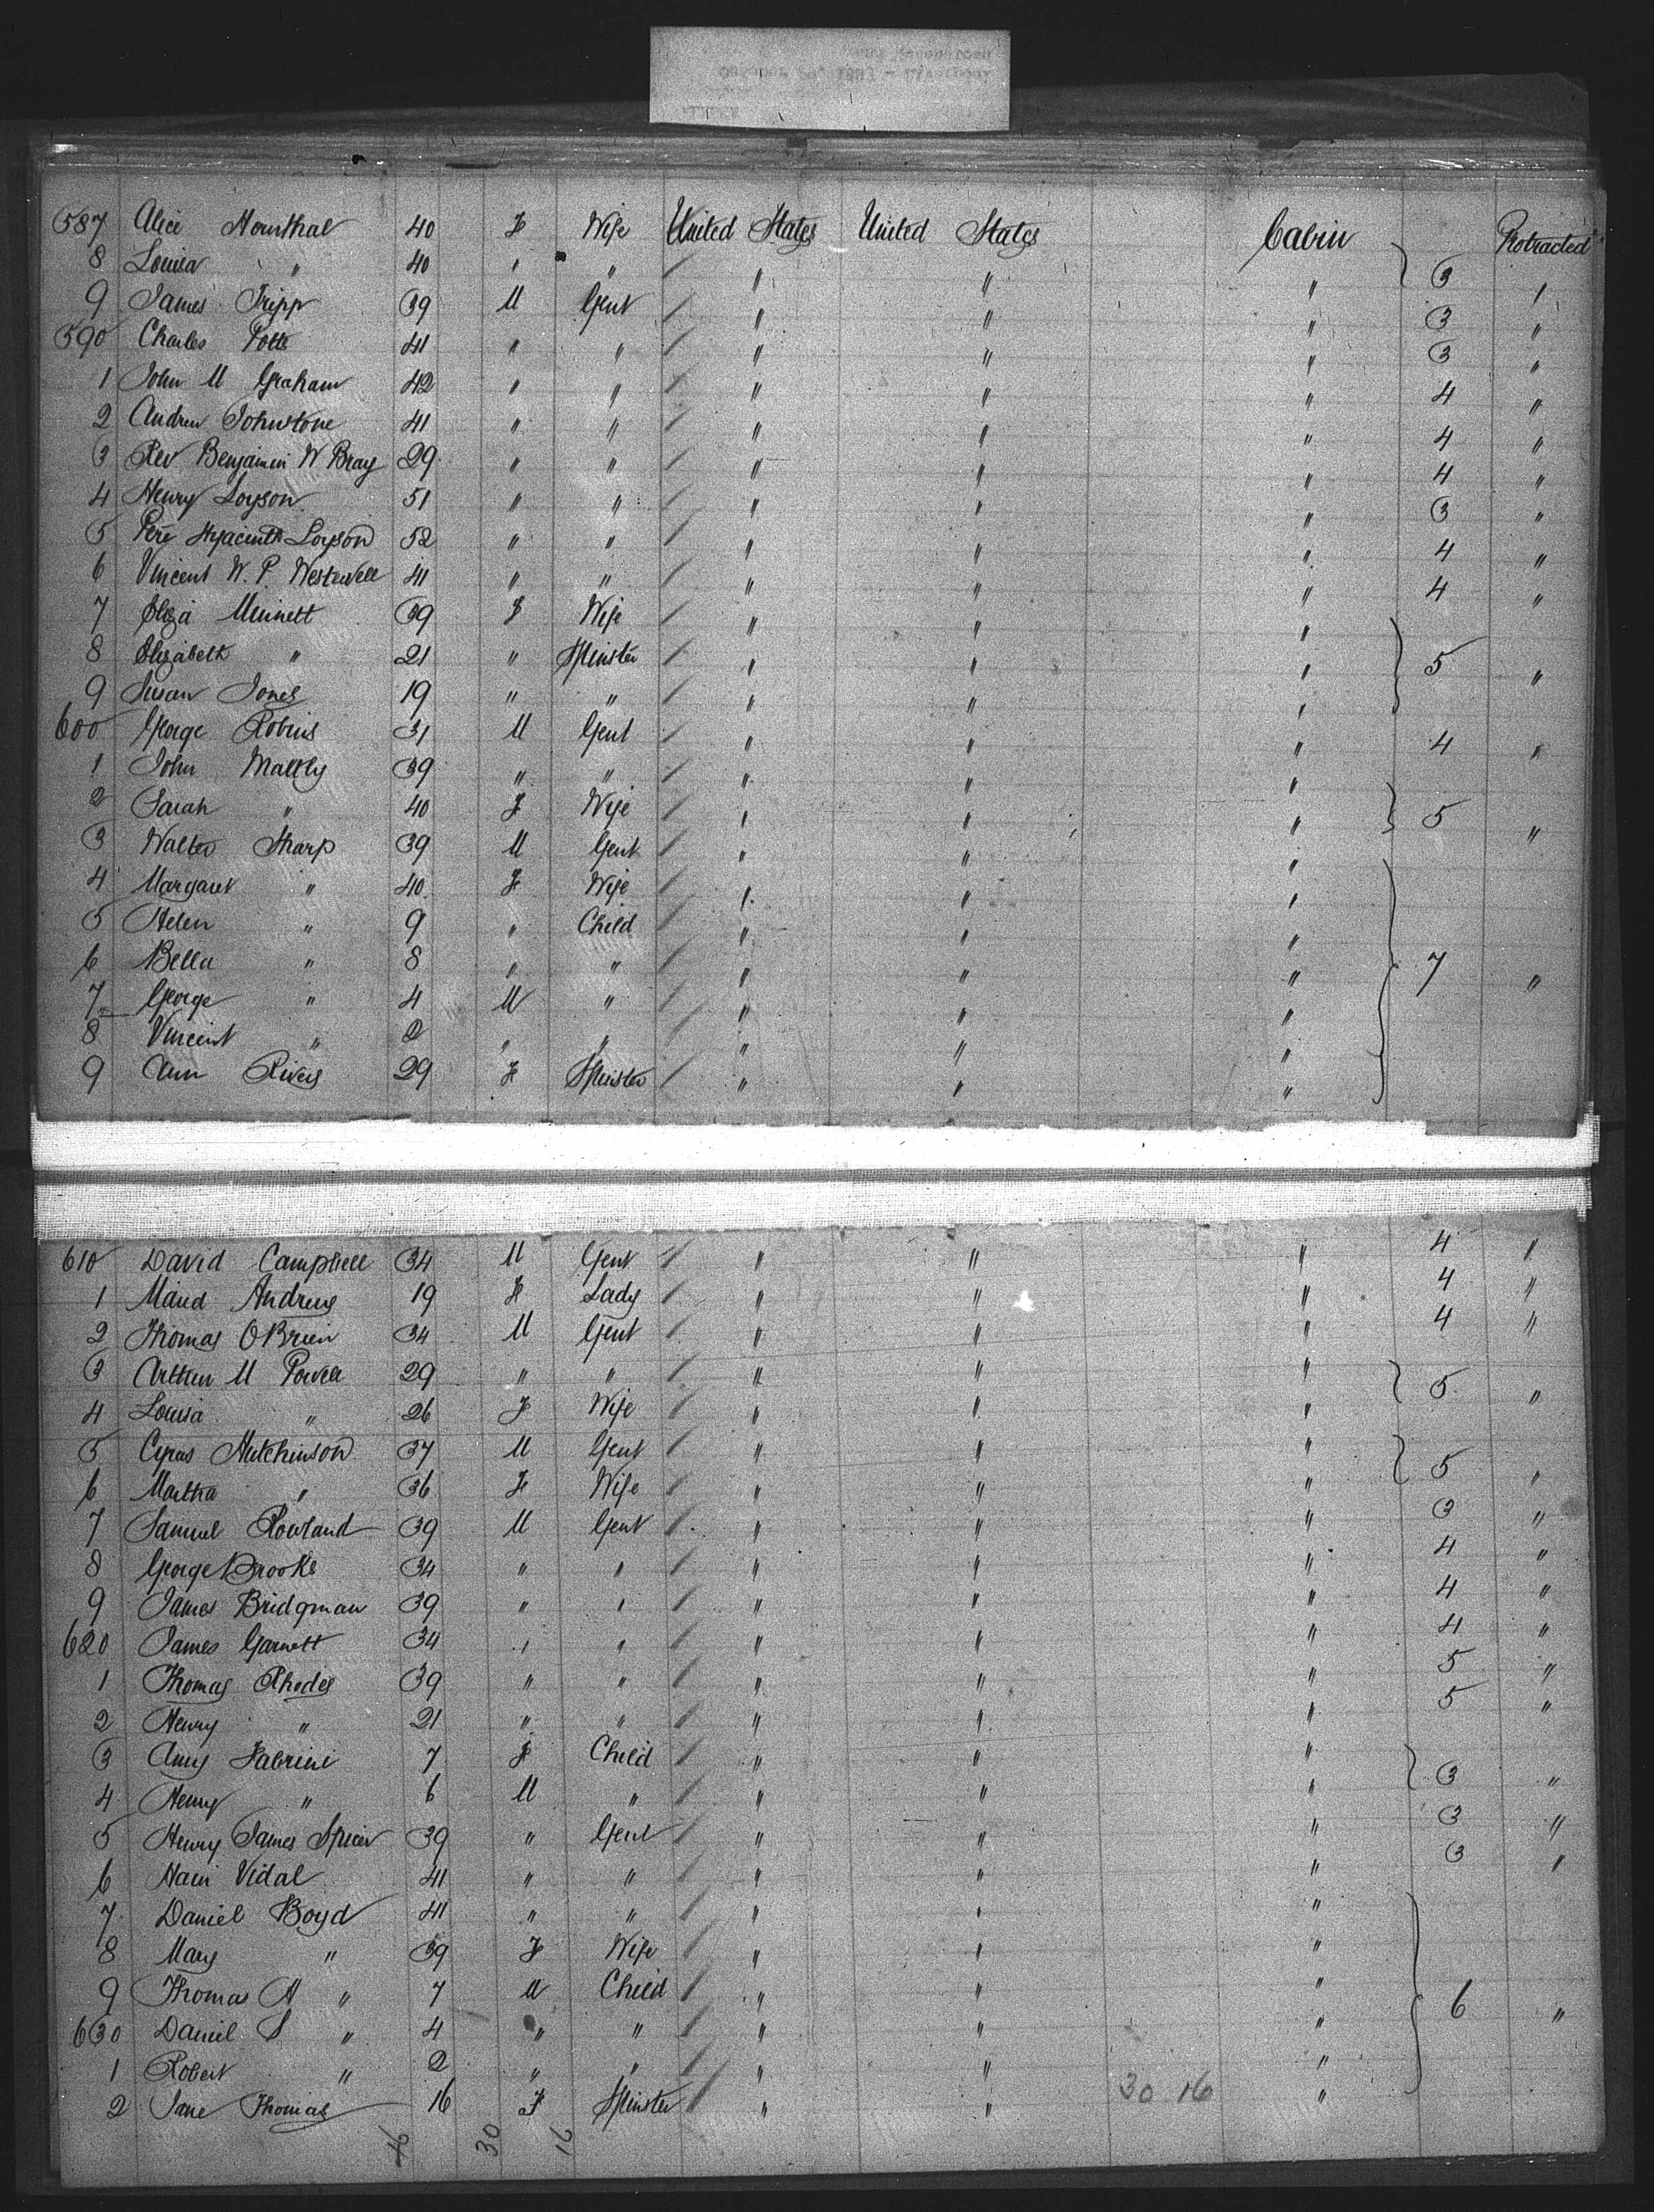 587 Alice Hornthal 40 F Wife United States United States Cabin Protracted
8 Louisa " 40 " " " " " } 3 "
9 James Tripp 39 M Gent " " " 3 "
590 Charles Potts 41 " " " " " 3 "
1 John M Graham 42 " " " " " 4 "
2 Andrew Johnstone 41 " " " " " 4 "
3 Rev Benjamin W Bray 29 " " " " " 4 "
4 Henry Loyson 51 " " " " " 3 "
5 Père Hyacinth Loyson 52 " " " " " 4 "
6 Vincent W. P. Westwell 41 " " " " " 4 "
7 Eliza Minnett 39 F Wife " " "
8 Elizabeth " 21 " Spinster " " " } 5 "
9 Susan Jones 19 " " " " "
600 George Robins 31 M Gent " " " 4 "
1 John Maltby 39 " " " " "
2 Sarah " 40 F Wife " " " } 5 "
3 Walter Sharp 39 M Gent " " "
4 Margaret " 40 F Wife " " "
5 Helen " 9 " Child " " "
6 Bella " 8 " " " " " } 7 "
7 George " 4 M " " " "
8 Vincent " 2 " " " " "
9 Ann Rivers 29 F Spinster " " "
610 David Campbell 34 M Gent " " " 4 "
1 Maud Andrews 19 F Lady " " " 4 "
2 Thomas OBrien 34 M Gent " " " 4 "
3 Arthur M Powell 29 " " " " " } 5 "
4 Louisa " 26 F Wife " " "
5 Cyrus Hutchinson 37 M Gent " " " } 5 "
6 Martha " 36 F Wife " " "
7 Samuel Rowland 39 M Gent " " " 3 "
8 George Brooks 34 " " " " " 4 "
9 James Bridgman 39 " " " " " 4 "
620 James Garnett 34 " " " " " 4 "
1 Thomas Rhodes 39 " " " " " 5 "
2 Henry " 21 " " " " " 5 "
3 Amy Fabrini 7 F Child " " " } 3 "
4 Henry " 6 M " " " "
5 Henry James Spicer 39 " Gent " " " 3 "
6 Vidal 41 " " " " " 3 "
7 Daniel Boyd 41 " " " " "
8 Mary " 39 F Wife " " "
9 Thomas A " 7 M Child " " " } 6 "
630 Daniel S " 4 " " " " "
1 Robert " 2 " " " " "
2 Jane Thomas 16 F Spinster " " 30 16 "
46 30 16